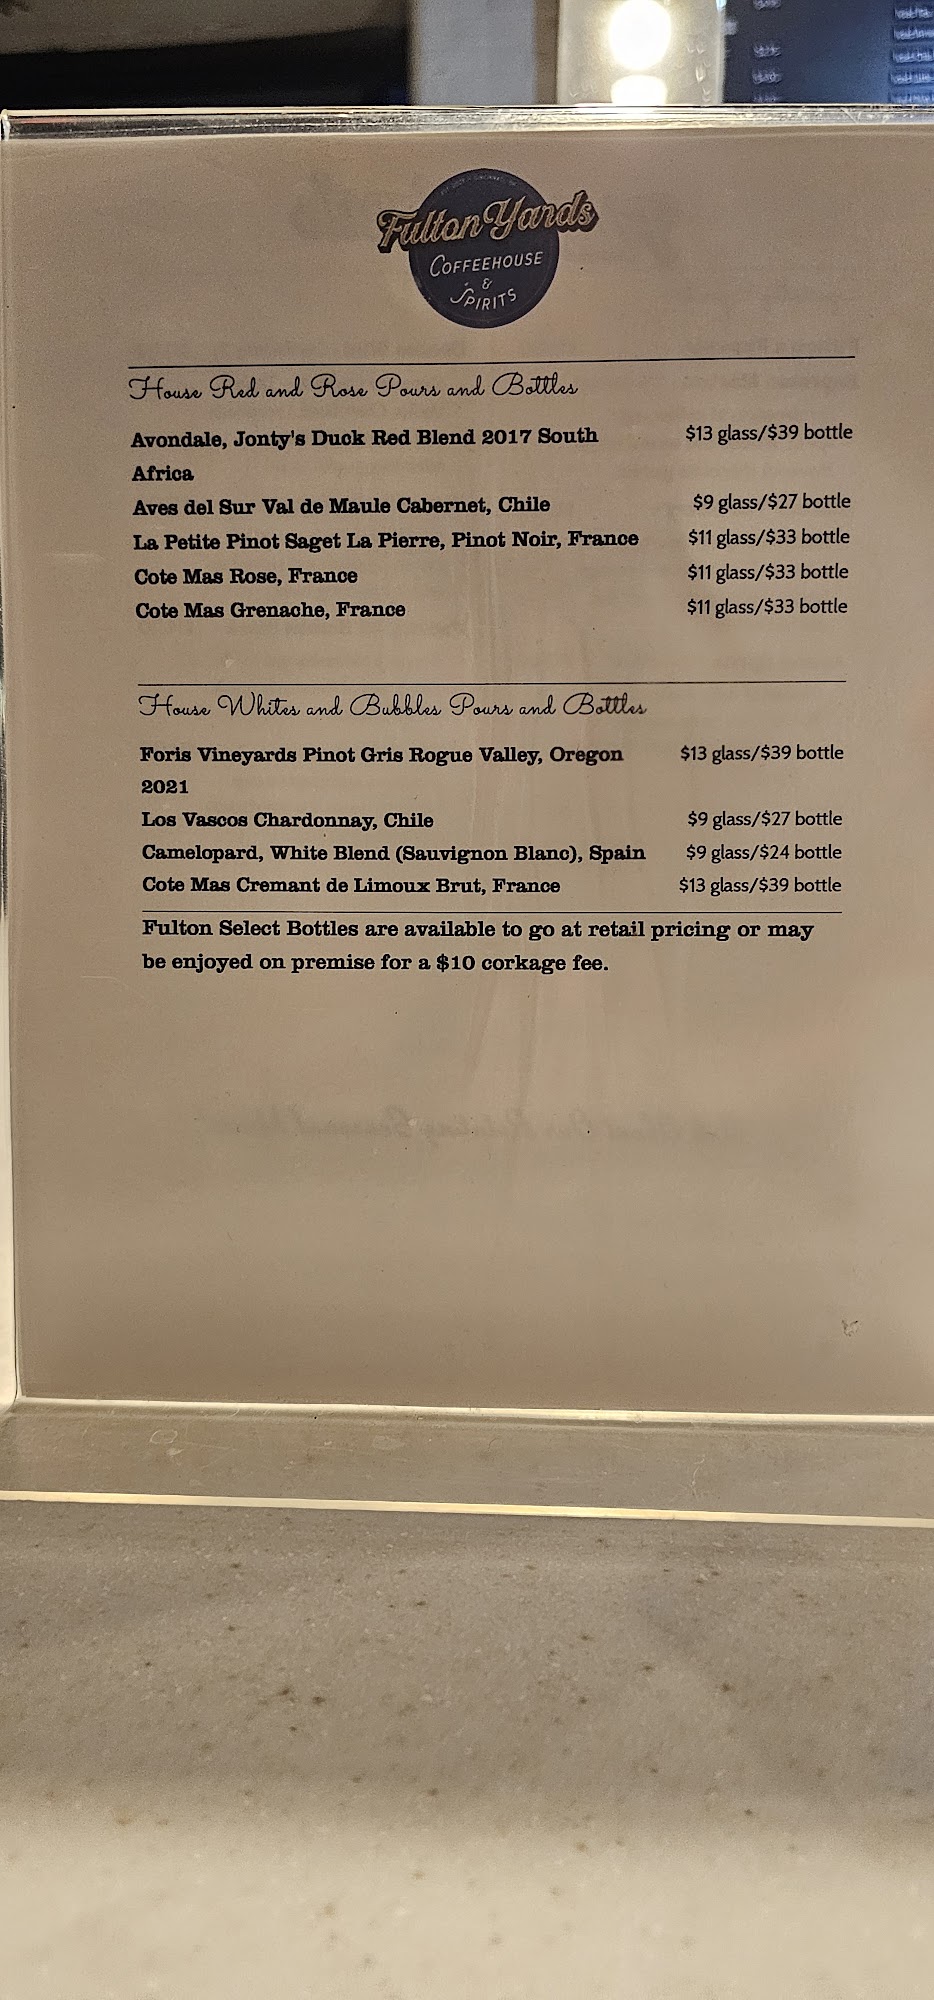 Fulton Yards
COFFEEHOUSE
&
SPIRITS
House Red and Rose Pours and Bottles
Avondale, Jonty's Duck Red Blend 2017 South $13 glass/$39 bottle
Africa
Aves del Sur Val de Maule Cabernet, Chile $9 glass/$27 bottle
La Petite Pinot Saget La Pierre, Pinot Noir, France $11 glass/$33 bottle
Cote Mas Rose, France $11 glass/$33 bottle
Cote Mas Grenache, France $11 glass/$33 bottle
House Whites and Bubbles Pours and Bottles
Foris Vineyards Pinot Gris Rogue Valley, Oregon $13 glass/$39 bottle
2021
Los Vascos Chardonnay, Chile $9 glass/$27 bottle
Camelopard, White Blend (Sauvignon Blanc), Spain $9 glass/$24 bottle
Cote Mas Cremant de Limoux Brut, France $13 glass/$39 bottle
Fulton Select Bottles are available to go at retail pricing or may
be enjoyed on premise for a $10 corkage fee.